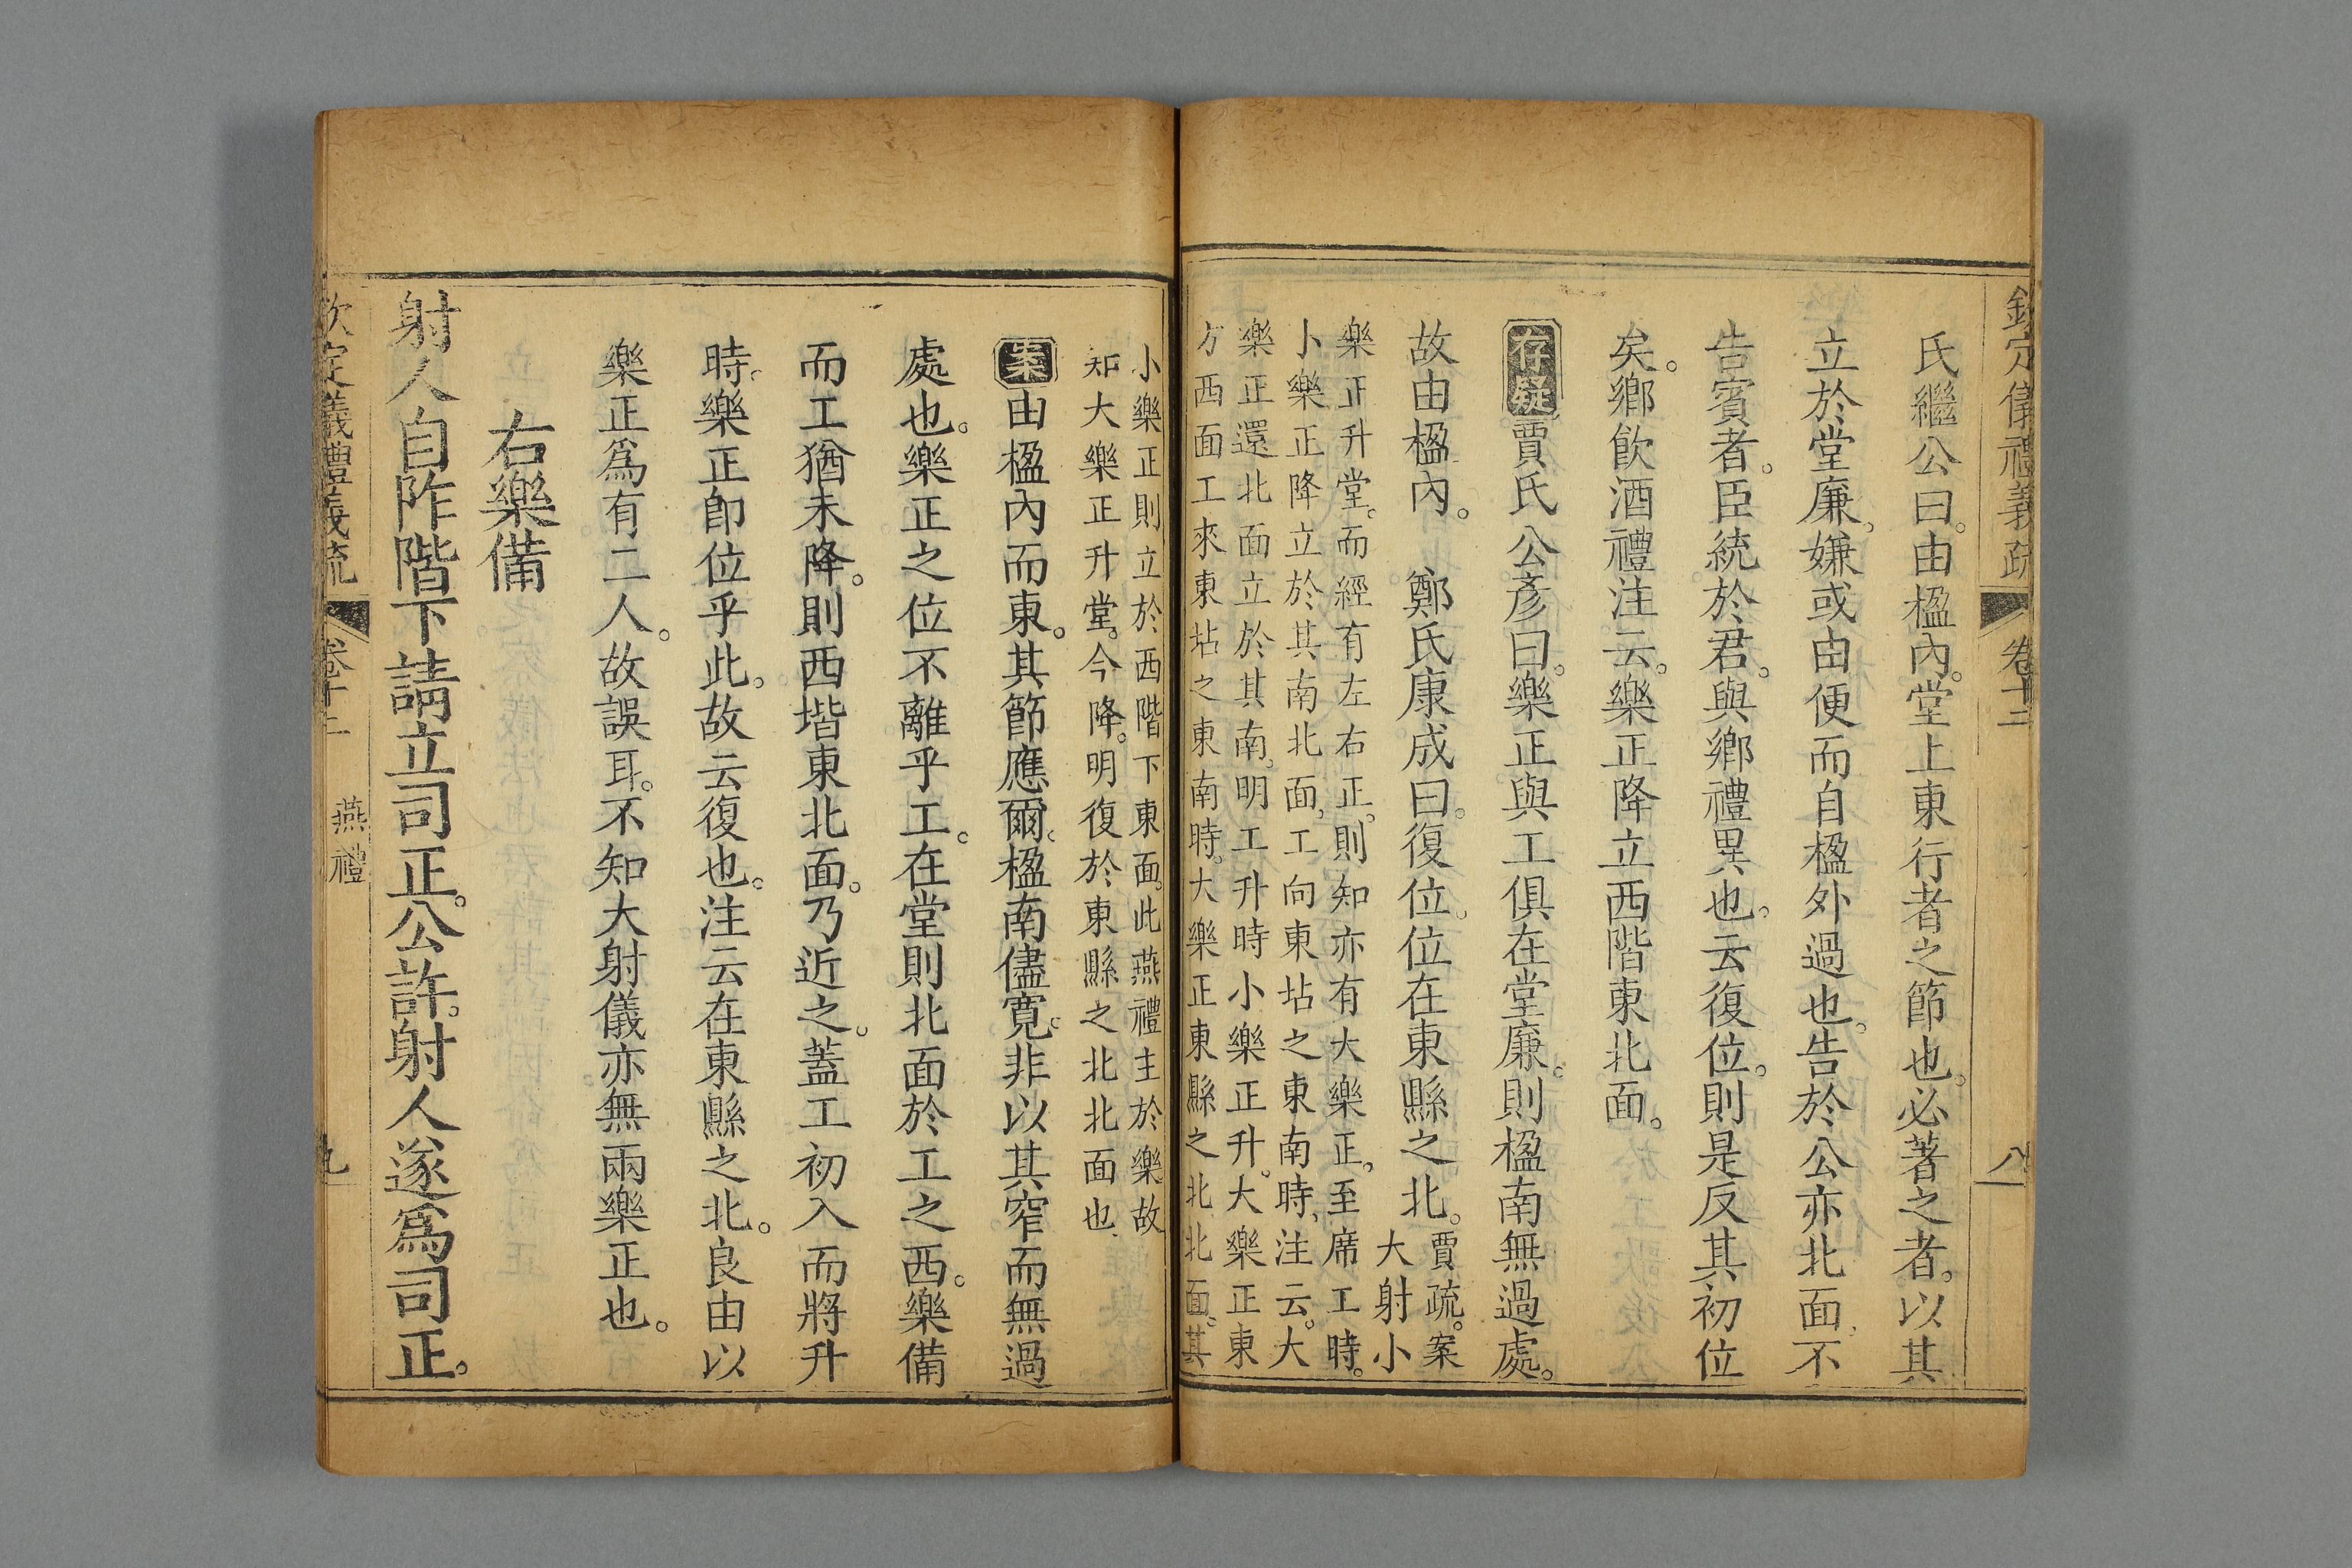 欽定儀禮義疏 卷十二 八
氏繼公曰。由楹內。堂上東行者之節也。必著之者。以其
立於堂廉。嫌或由便而自楹外過也。告於公亦北面不
告賓者。臣統於君。與鄉禮異也。云復位。則是反其初位
矣。鄉飲酒禮注云。樂正降立西階東北面。
存疑 賈氏公彥曰。樂正與工俱在堂廉。則楹南無過處。
故由楹內。 鄭氏康成曰。復位。位在東縣之北。賈疏。案
大射小
樂正升堂。而經有左右正。則知亦有大樂正。至席工時。
小樂正降立於其南北面。工向東坫之東南時。注云。大
樂正還北面立於其南。明工升時小樂正升。大樂正東
方西面工來東坫之東南時。大樂正東縣之北北面。其
小樂正則立於西階下東面。此燕禮主於樂故
知大樂正升堂。今降。明復於東縣之北北面也
案 由楹內而東。其節應爾。楹南儘寬。非以其窄而無過
處也。樂正之位不離乎工。在堂則北面於工之西。樂備
而工猶未降。則西堦東北面。乃近之。蓋工初入而將升
時。樂正卽位乎此。故云復也。注云在東縣之北。良由以
樂正爲有二人。故誤耳。不知大射儀亦無兩樂正也。
右樂備
射人自阼階下請立司正。公許。射人遂爲司正。
欽定儀禮義疏 卷十二 燕禮 九